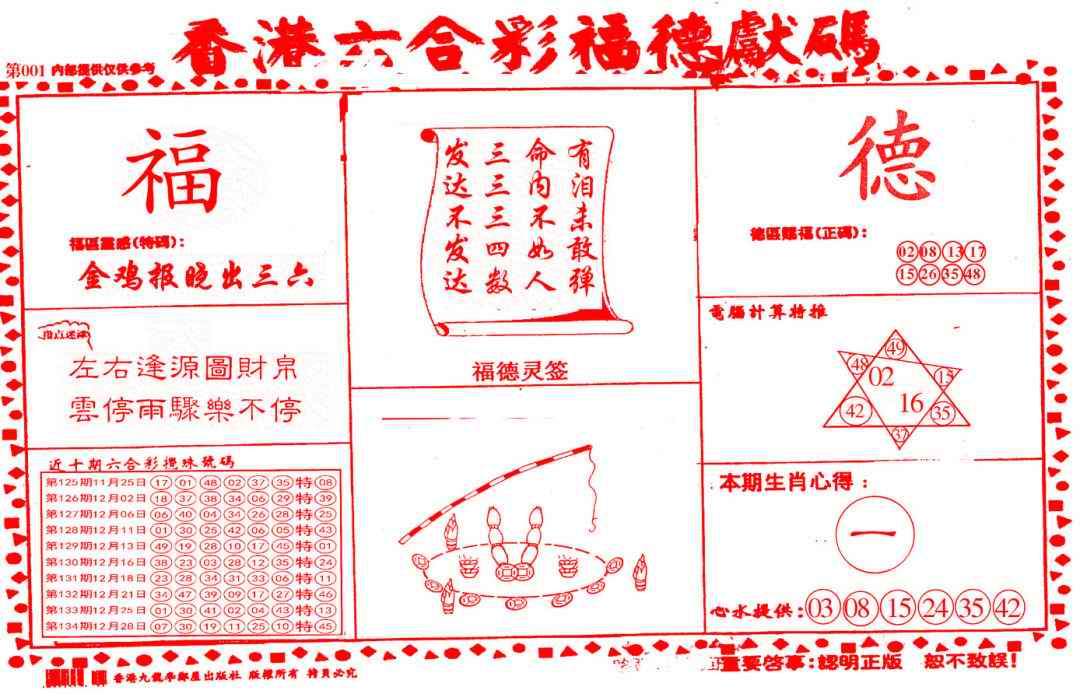 香港六合彩福德獻碼
第001 内部提供仅供参考
福
福區靈感(特碼):
金鸡报晓出三六
指点迷津
左右逢源圖財帛
雲停雨驟樂不停
近十期六合彩攪珠號碼
第125期11月25日 17 01 48 02 37 35 特 08
第126期12月02日 18 37 38 34 06 29 特 39
第127期12月06日 06 40 04 34 26 28 特 25
第128期12月11日 01 30 25 42 06 05 特 43
第129期12月13日 49 19 28 10 17 45 特 01
第130期12月16日 38 23 03 28 12 35 特 24
第131期12月18日 23 28 34 31 33 06 特 11
第132期12月21日 34 47 39 09 17 27 特 46
第133期12月25日 01 30 41 02 04 43 特 13
第134期12月28日 07 30 19 11 25 10 特 45
有泪未敢弹
命内不如人
三三三四数
发达不发达
福德灵签
德
德區賜福(正碼):
02 08 13 17
15 26 35 48
電腦計算特推
49
48 02 15
42 16 35
37
本期生肖心得:
一
心水提供: 03 08 15 24 35 42
重要啓事:認明正版 恕不致誤!
版權所有